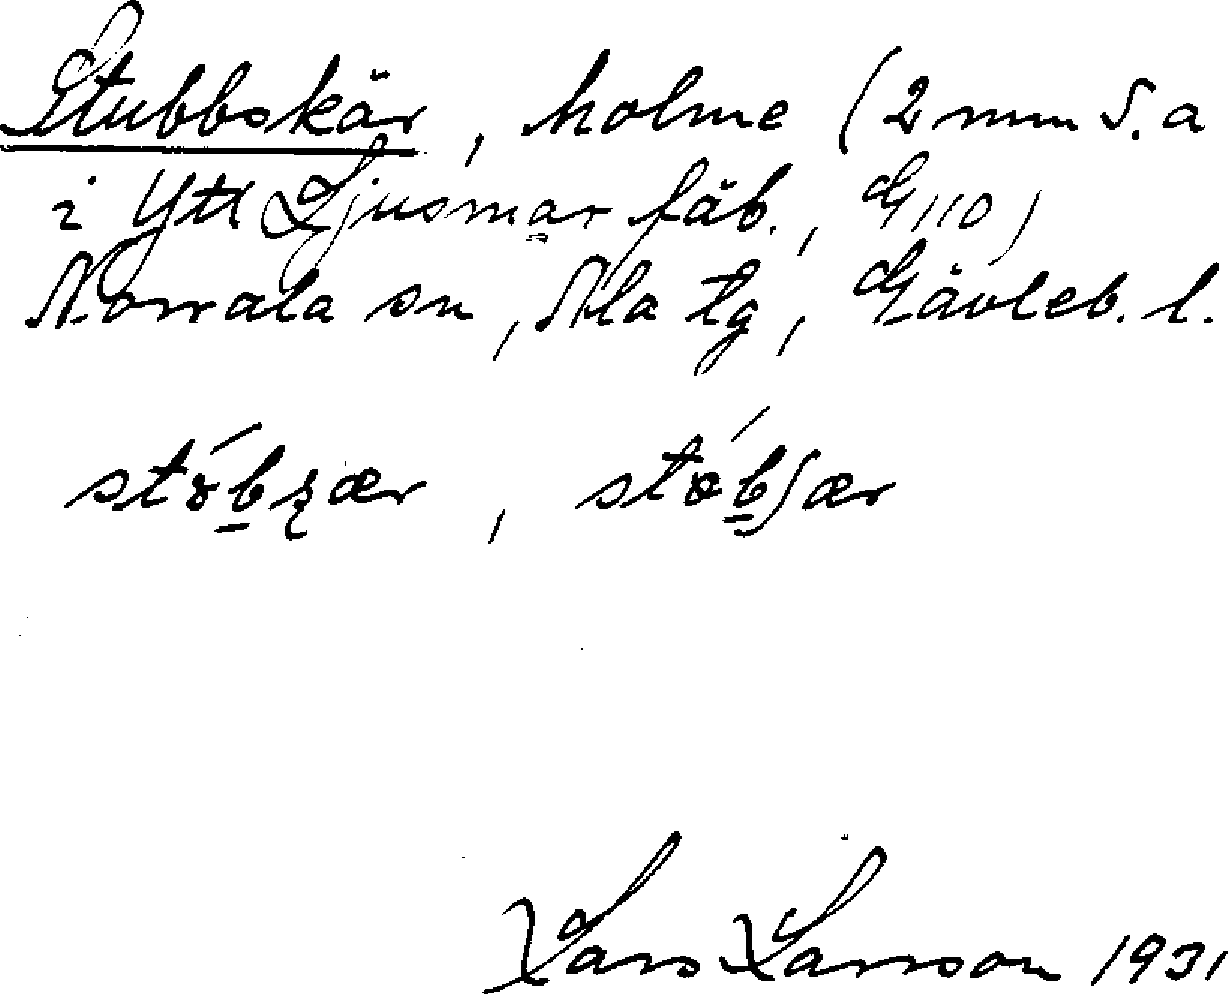 Stubbskär, holme (2 mm S. a
i Ytt Ljusmar fäb., G110)
Norrala sn, Ala tg, Gävleb. l.
stób̲ʂær, stǿb̲ʃær
Lars Larsson 1931